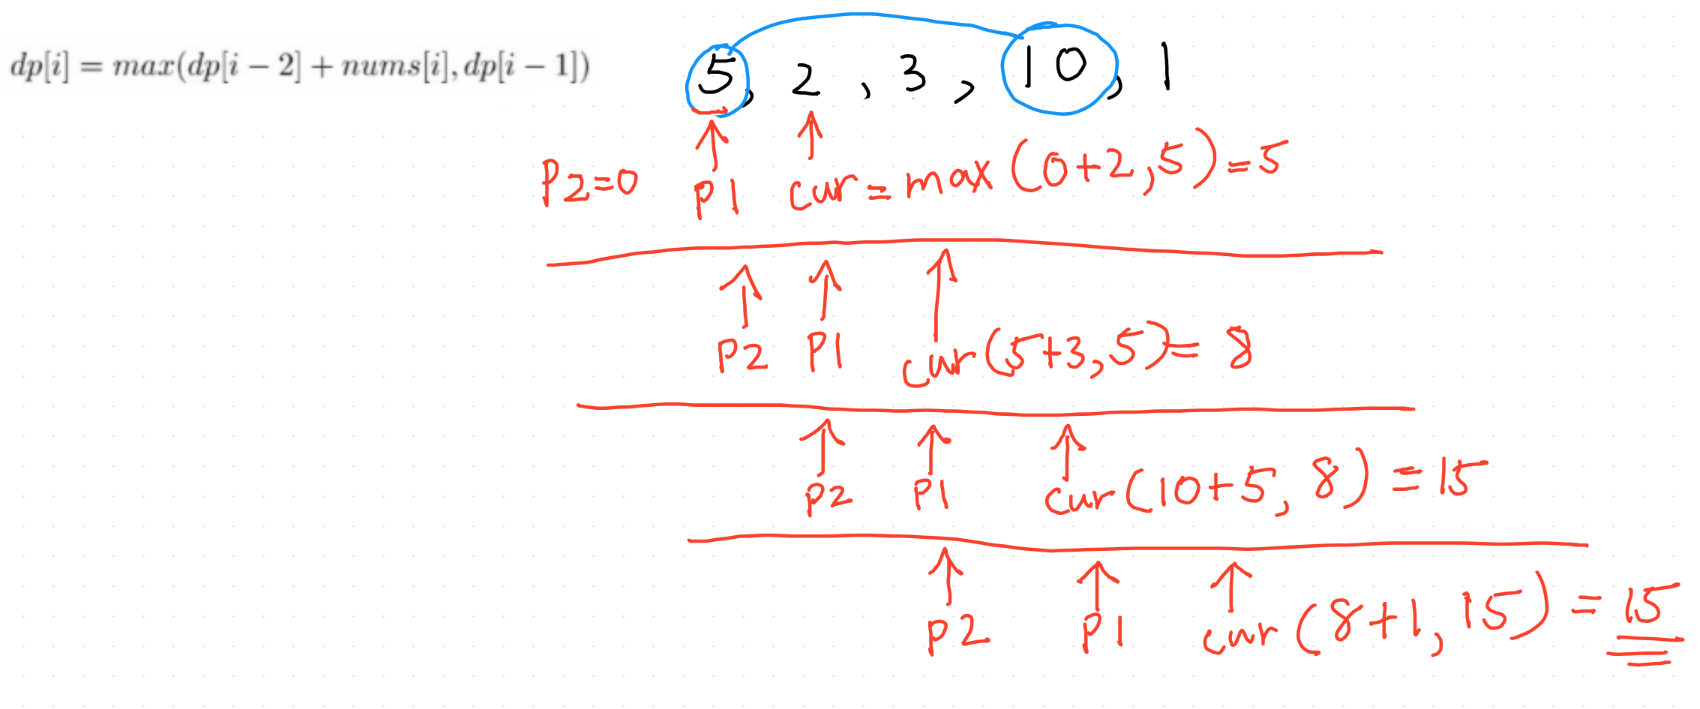 dp[i] = max(dp[i − 2] + nums[i], dp[i − 1])
5, 2, 3, 10, 1
P2=0 P1 cur = max (0+2,5)=5
P2 P1 cur(5+3,5)= 8
P2 P1 cur(10+5, 8) = 15
P2 P1 cur (8+1, 15) = 15